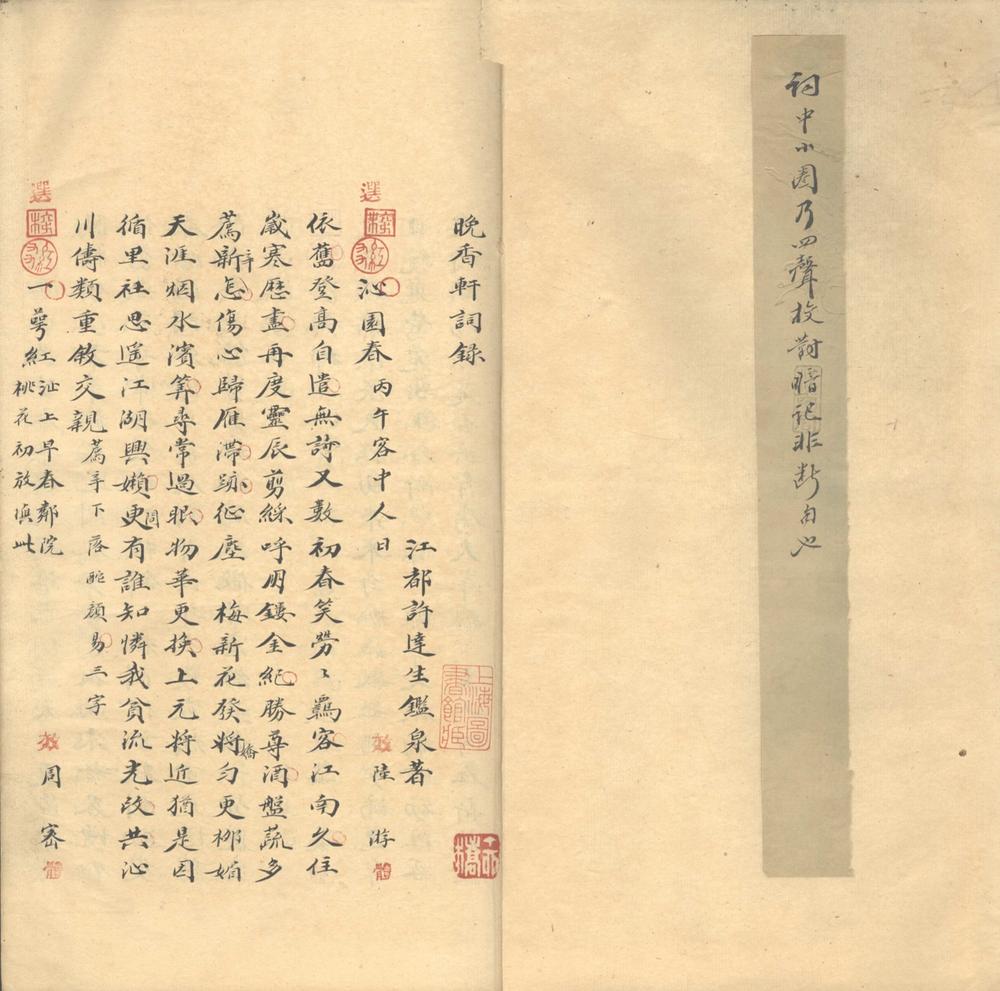 詞中小圈乃四聲校對暗記非斷句也
晚香軒詞錄
江都許達生鑑泉著
選
沁園春 丙午客中人日 效陸游體
依舊登高自遣無詩又數初春笑勞〻羈客江南久住
歲寒歷盡再度靈辰剪綵呼朋鏤金紀勝尊酒盤蔬多
薦新怎傷心歸雁滯跡征塵 梅新花發將勻更柳媚
辛
嬌
天涯烟水濱算尋常過眼物華更換上元將近猶是因
循里社思遥江湖興嬾更有誰知憐我貧流光改共沁
問
川儔類重敘交親 薦辛下落酡顏易三字
選
一萼紅 沚上早春鄰院
桃花初放填此
效周密體
上海圖
書館藏